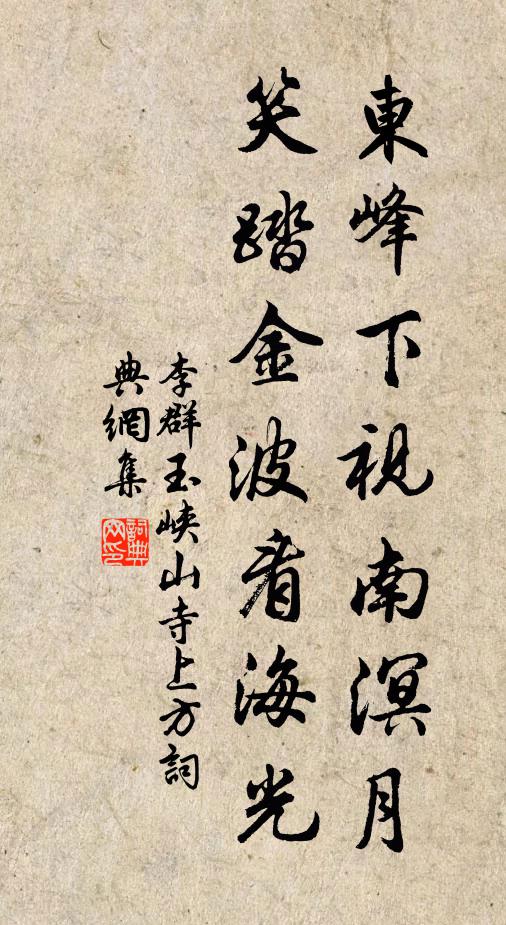 東峰下視南溟月
笑踏金波看海光
李群玉峽山寺上方詞
典網集
詞典网印